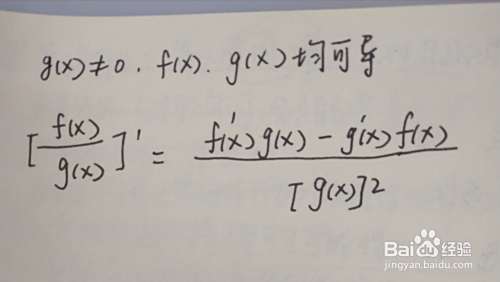 g(x)≠0. f(x). g(x)均可导
[f(x)/g(x)]' = f'(x)g(x) - g'(x)f(x)/[g(x)]²
Baidu经验
jingyan.baidu.com